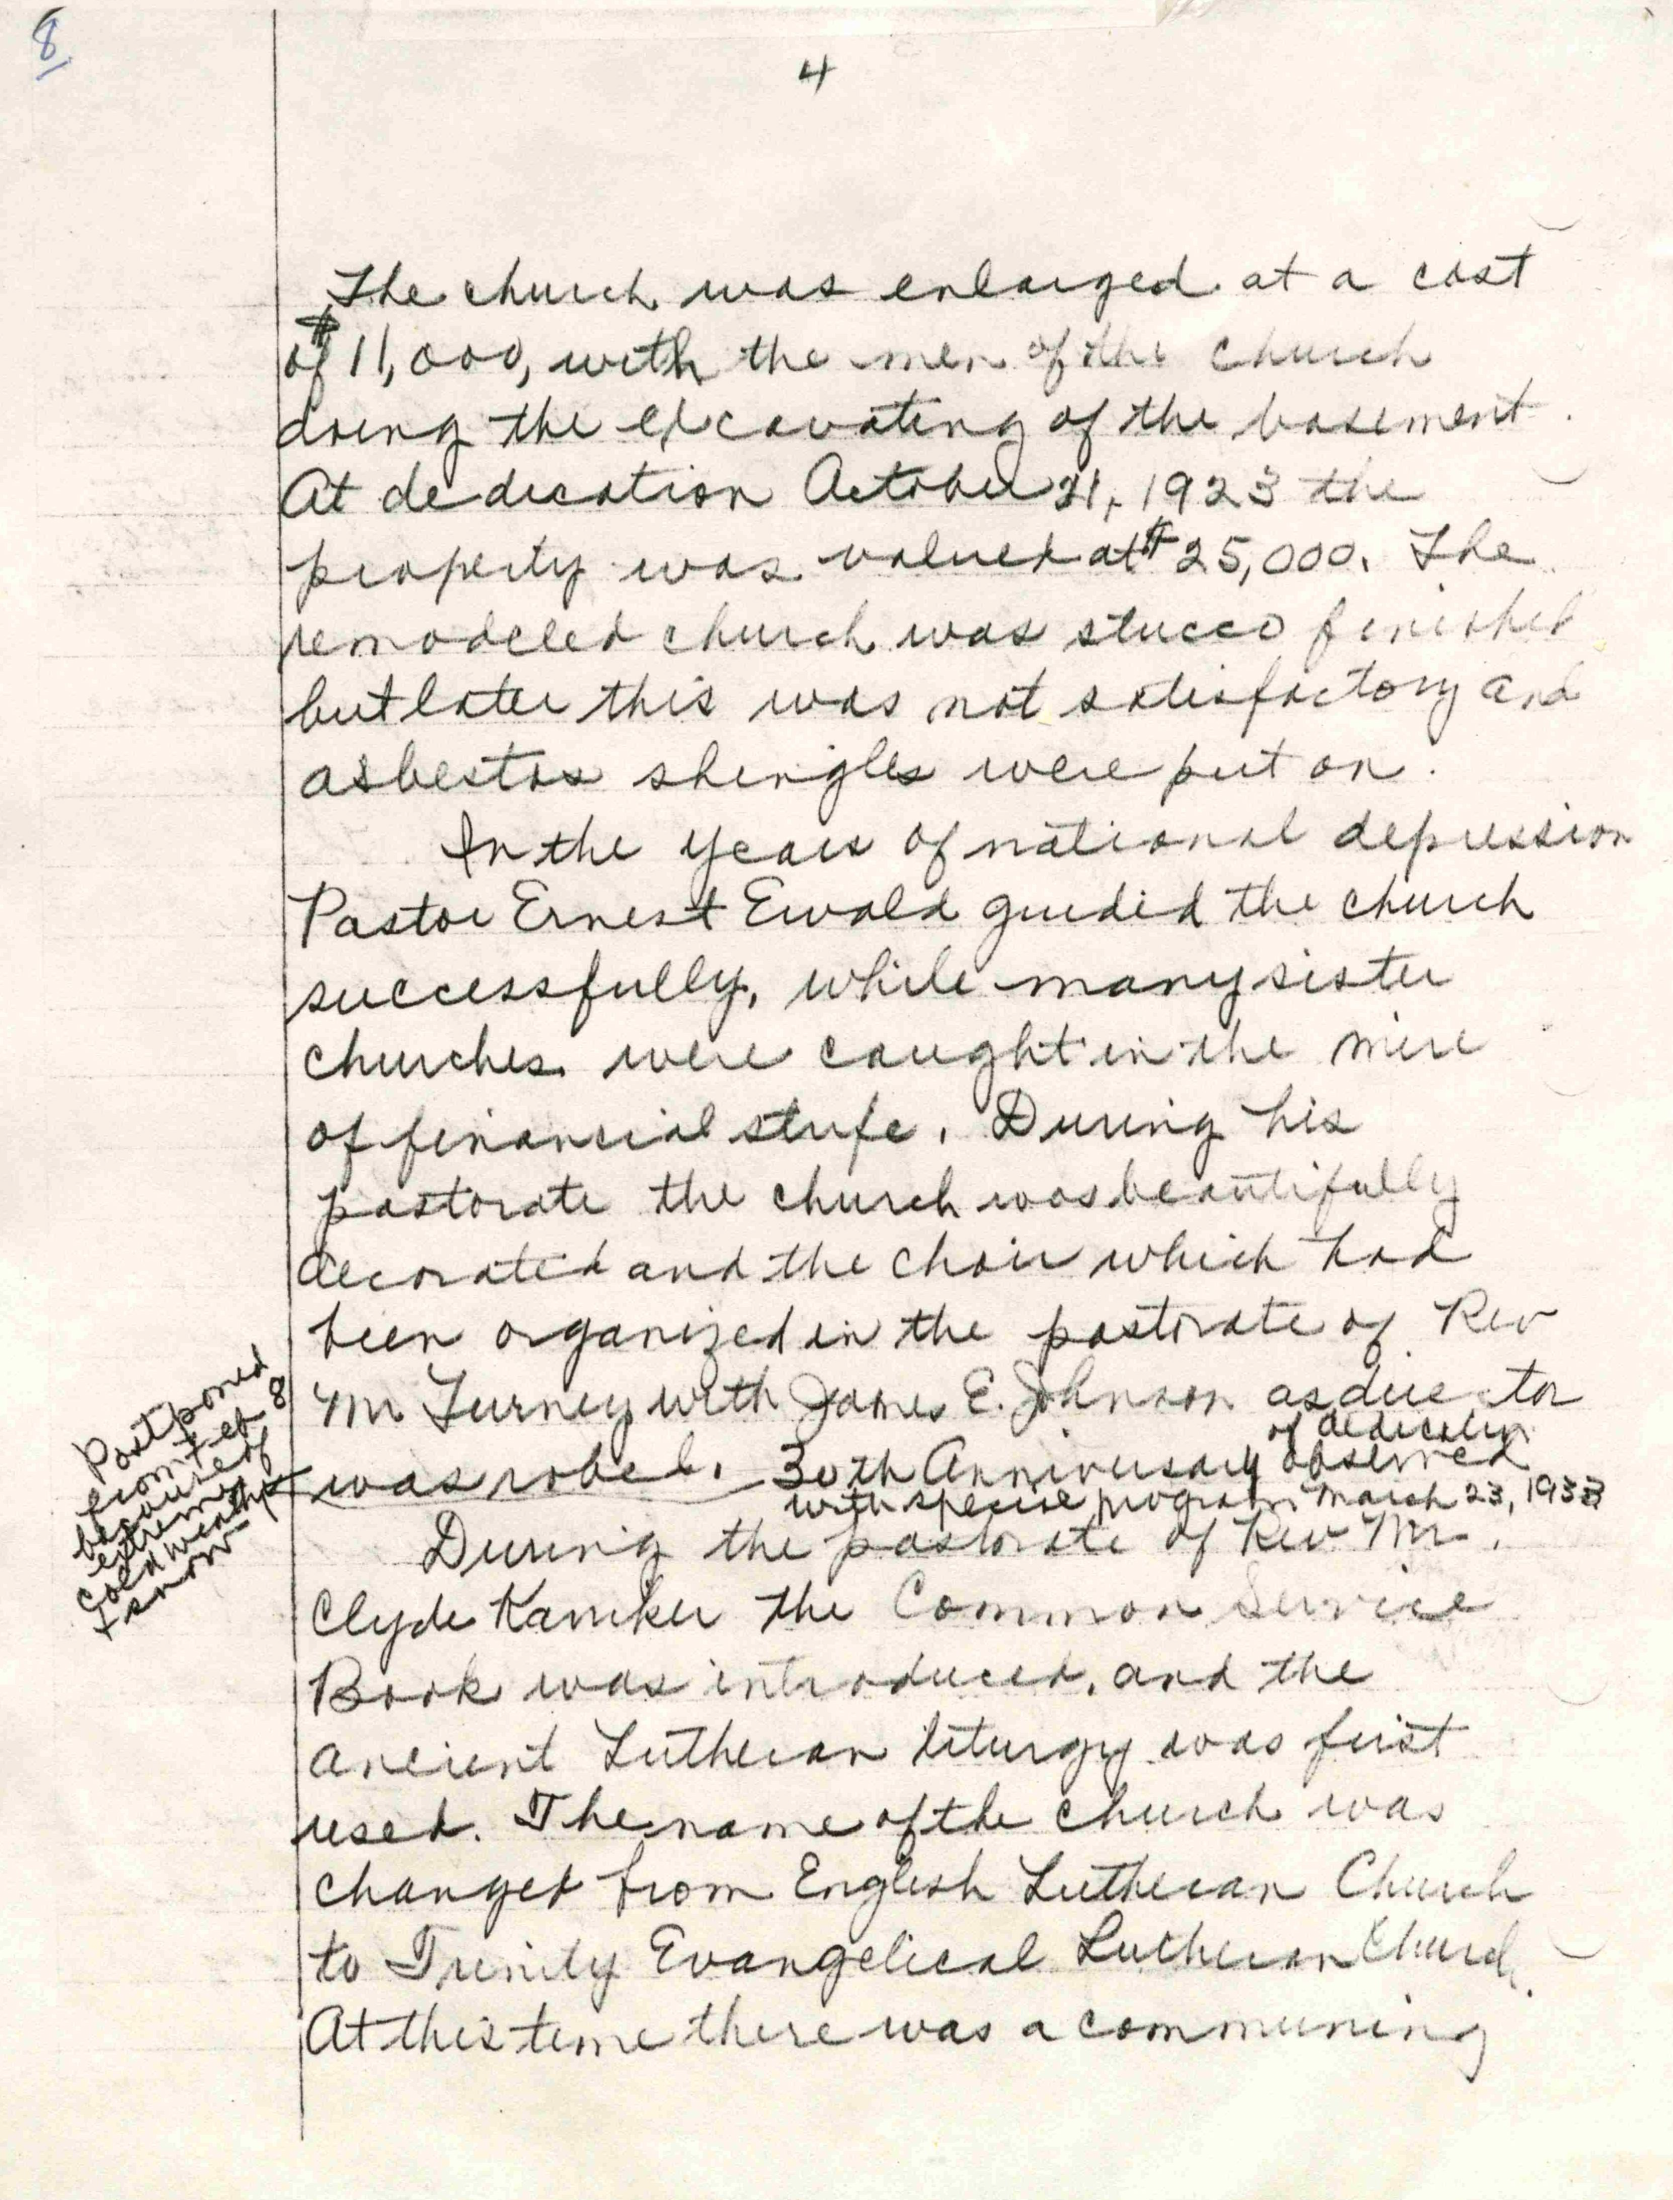 8
4
The church was enlarged at a cost
of $11,000, with the men of the church
doing the excavating of the basement.
At dedication October 21, 1923 the
property was valued at $25,000. The
remodeled church was stucco finished
but later this was not satisfactory and
asbestos shingles were put on.
In the years of national depression
Pastor Ernest Ewald guided the church
successfully, while many sister
churches were caught in the mire
of financial strife. During his
pastorate the church was beautifully
decorated and the choir which had
been organized in the pastorate of Rev
Mr Turney with James E. Johnson as director
was robed. 30th Anniversary of dedication observed
with special program March 23, 1933
Postponed
from Feb 8
because of
extremely
cold weather
+ snow
During the pastorate of Rev Mr.
Clyde the Common Service
Book was introduced, and the
ancient Lutheran liturgy was first
used. The name of the church was
changed from English Lutheran Church
to Trinity Evangelical Lutheran Church.
At this time there was a communing